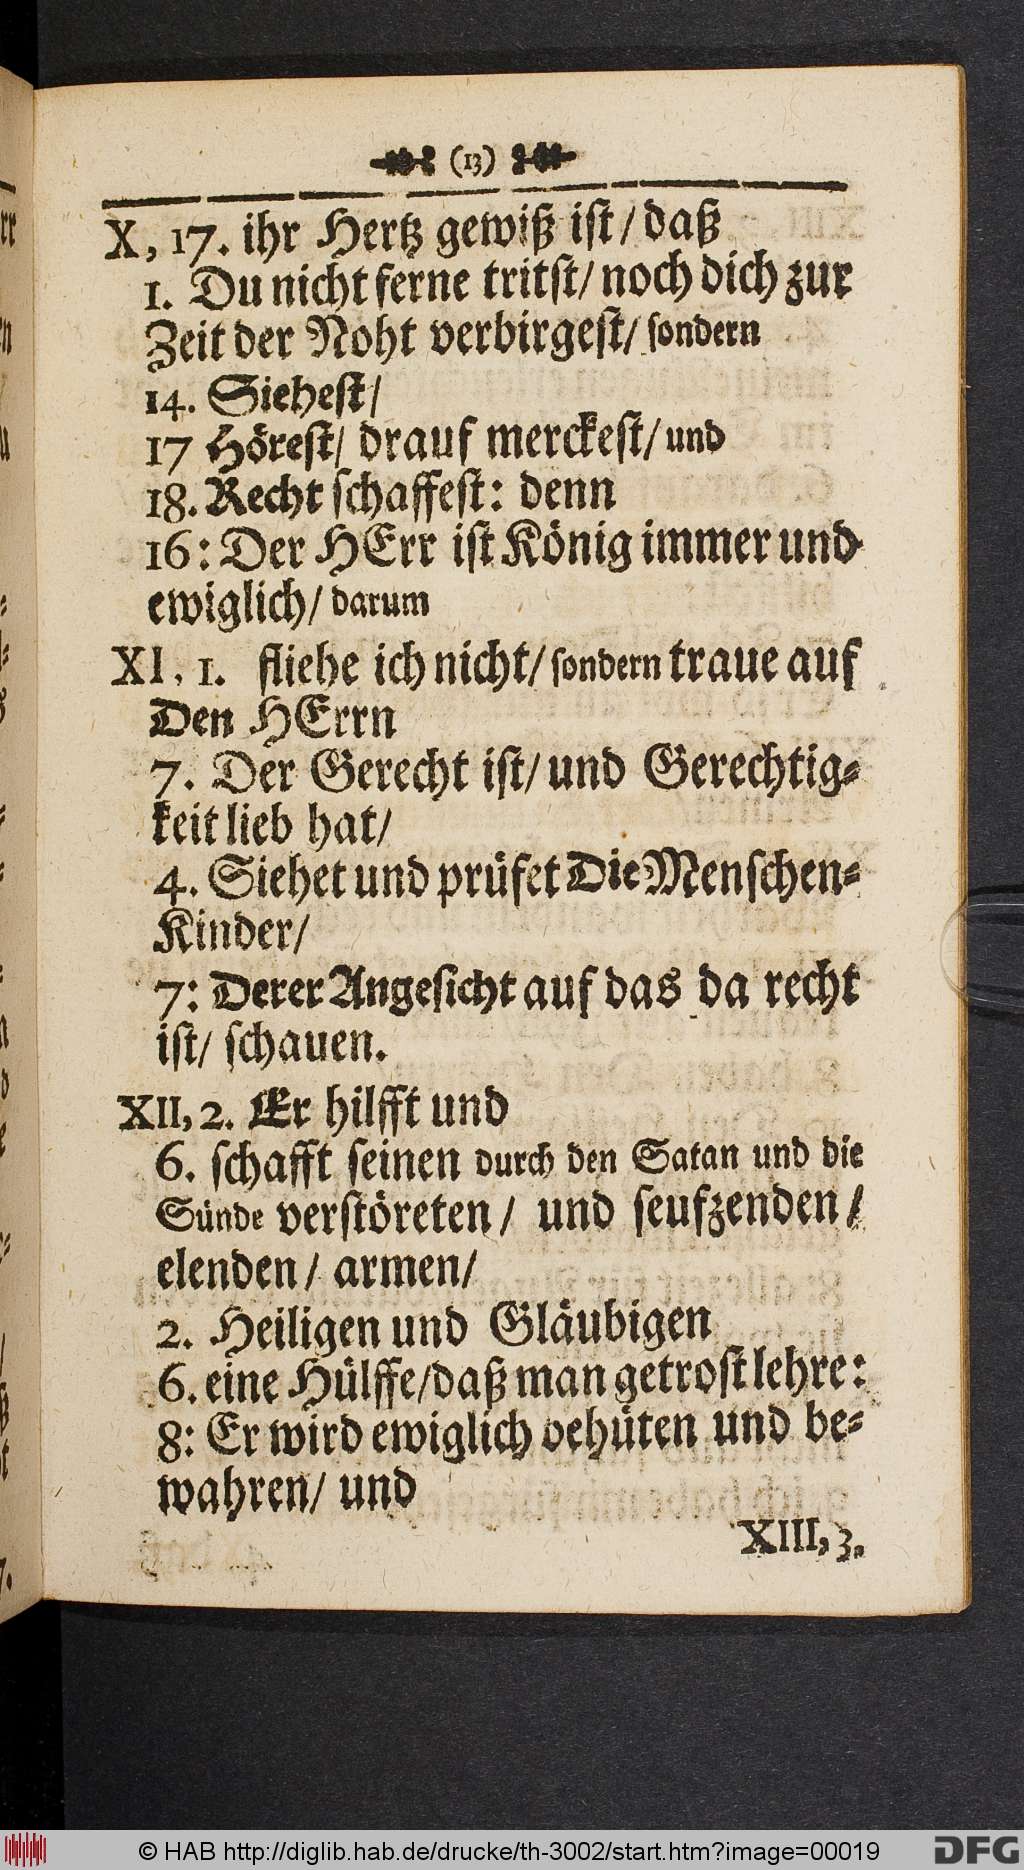 (13)
X, 17. ihr Hertz gewiß ist/ daß
1. Du nicht ferne tritst/ noch dich zur
Zeit der Noht verbirgest/ sondern
14. Siehest/
17 Hörest/ drauf merckest/ und
18. Recht schaffest: denn
16: Der HErr ist König immer und
ewiglich/ darum
XI, 1. fliehe ich nicht/ sondern traue auf
Den HErrn
7. Der Gerecht ist/ und Gerechtig=
keit lieb hat/
4. Siehet und prüfet Die Menschen=
Kinder/
7: Derer Angesicht auf das da recht
ist/ schauen.
XII, 2. Er hilfft und
6. schafft seinen durch den Satan und die
Sünde verstöreten/ und seufzenden/
elenden/ armen/
2. Heiligen und Gläubigen
6. eine Hülffe/ daß man getrost lehre:
8: Er wird ewiglich behüten und be=
wahren/ und
XIII, 3.
© HAB http://diglib.hab.de/drucke/th-3002/start.htm?image=00019
DFG